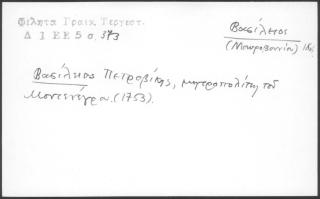 Φίλητα Γραικ. Τεργεστ.
Δ 1 ΕΕ 5 σ. 373
Βασίλειος
(Μαυροβουνίου)
Βασίλειος Πετροβίκης, μητροπολίτης τοῦ
Μοντενέγρου. (1753).